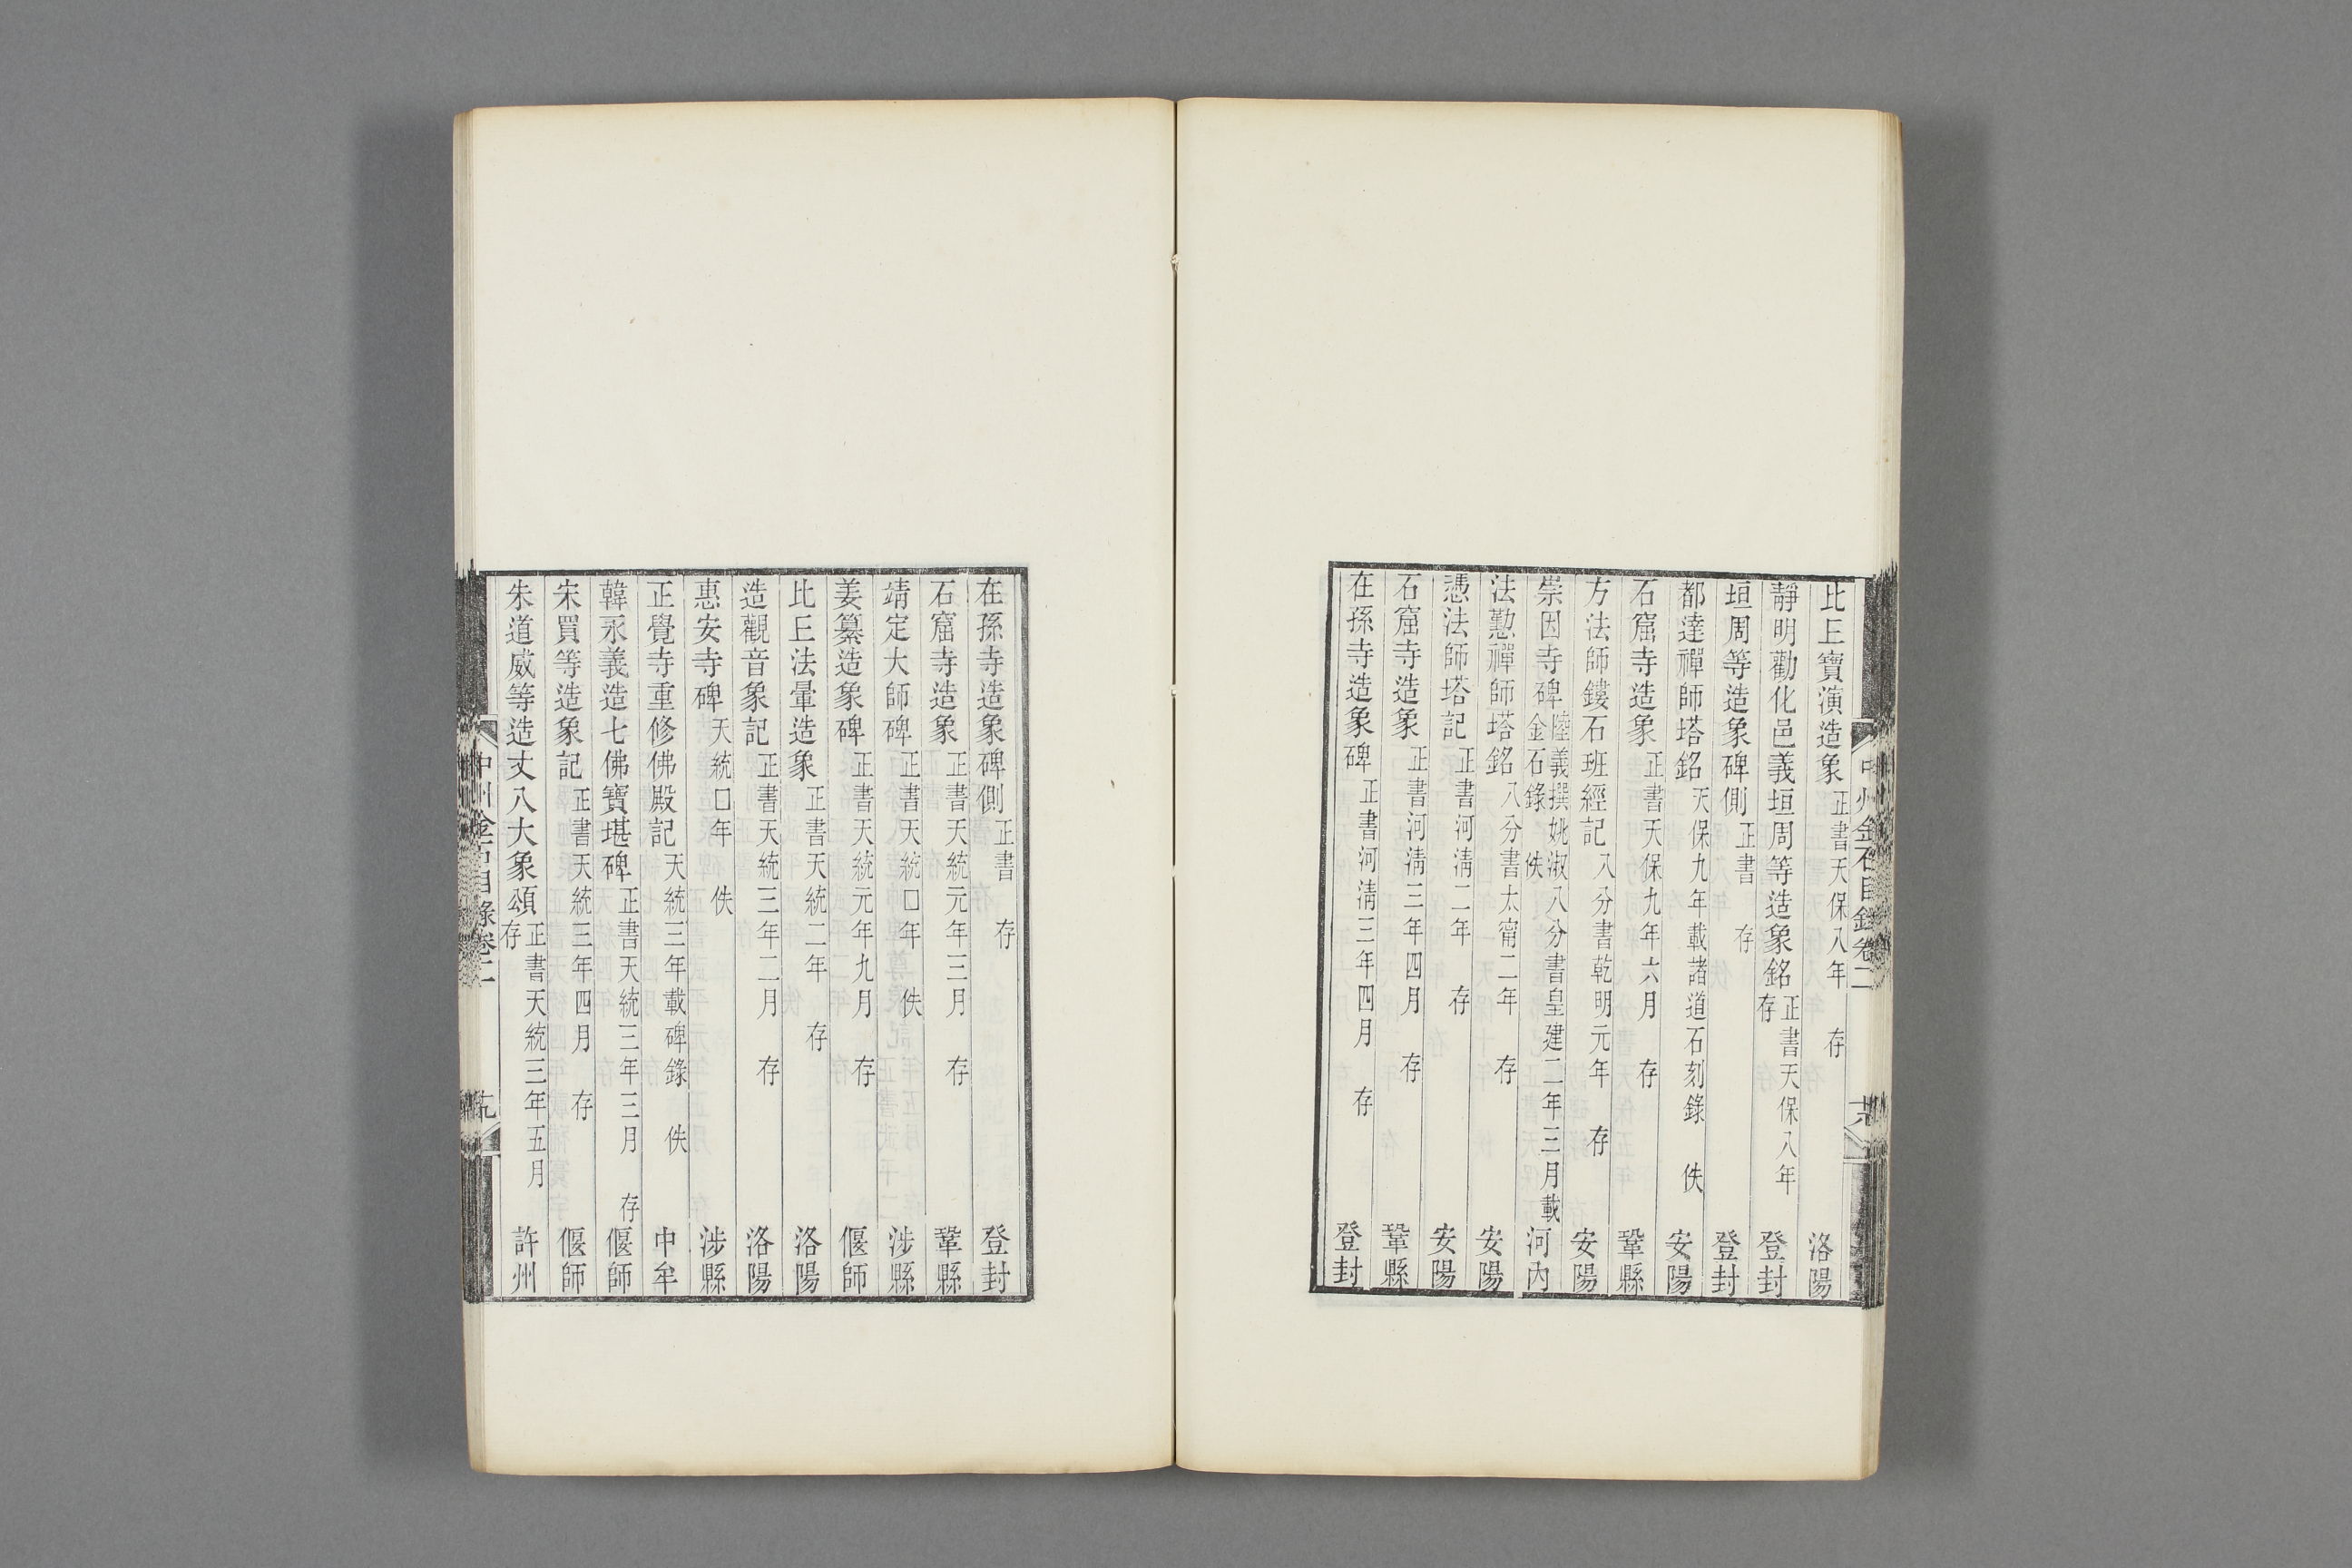 比丘寶演造象 正書天保八年 存 洛陽
靜明勸化邑義垣周等造象銘 正書天保八年 存 登封
垣周等造象碑側 正書 存 登封
都達禪師塔銘 天保九年載諸道石刻錄 佚 安陽
石窟寺造象 正書天保九年六月 存 鞏縣
方法師鏤石班經記 八分書乾明元年 存 安陽
崇因寺碑 陸義撰姚淑八分書皇建二年三月載金石錄 佚 河內
法懃禪師塔銘 八分書太甯二年 存 安陽
馮法師塔記 正書河淸二年 存 安陽
石窟寺造象 正書河淸三年四月 存 鞏縣
在孫寺造象碑 正書河淸三年四月 存 登封
中州金石目錄卷二 十八
在孫寺造象碑側 正書 存 登封
石窟寺造象 正書天統元年三月 存 鞏縣
靖定大師碑 正書天統口年 佚 涉縣
姜纂造象碑 正書天統元年九月 存 偃師
比丘法暈造象 正書天統二年 存 洛陽
造觀音象記 正書天統三年二月 存 洛陽
惠安寺碑 天統口年 佚 涉縣
正覺寺重修佛殿記 天統三年載碑錄 佚 中牟
韓永義造七佛寶堪碑 正書天統三年三月 存 偃師
宋買等造象記 正書天統三年四月 存 偃師
朱道威等造丈八大象頌 正書天統三年五月 存 許州
中州金石目錄卷二 十九